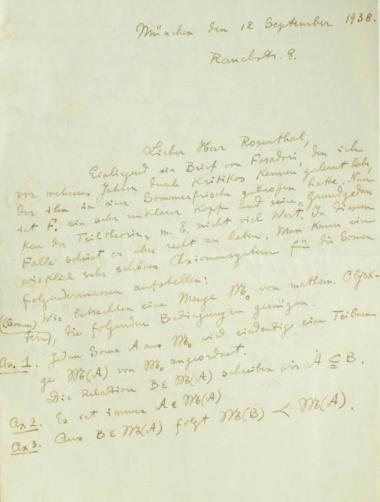 München den 12 September 1938.
Rauchstr. 8.
Lieber Herr Rosenthal,
Einliegend ein Brief von Foradori, den ich
vor mehreren Jahren durch Kritikos kennen gelernt habe,
der ihn in einer Sommerfrische getroffen hatte. Nun
ist F. ein sehr unklarer Kopf und seine Grundgedan
ken der Teiltheorie, m. E. nicht viel Wert. In diesem
Falle scheint er aber recht zu haben. Man kann ein
wirklich sehr schönes Axiomensystem für die Somen
folgendermassen aufstellen:
Wir betrachten eine Menge M₀ von mathem. Objek-
(Somen)
ten, die folgenden Bedingungen genügen.
Ax 1. Jedem Soma A aus M₀ wird eindeutig eine Teilmen
ge M(A) von M₀ zugeordnet.
Die Relation B∈M(A) schreiben wir A ⊆ B.
Ax 2. Es ist immer A∈M(A)
Ax 3. Aus B∈M(A) folgt M(B) ≺ M(A).